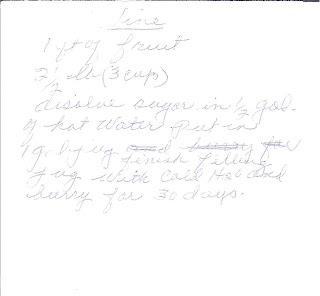 Wine
1 qt of fruit
2 1/2 lb (3 cups)
disolve sugar in 1/2 gal.
of hot water put in
1 g. by jug and burry for
finish filling
jug with cold H2O and
burry for 30 days.